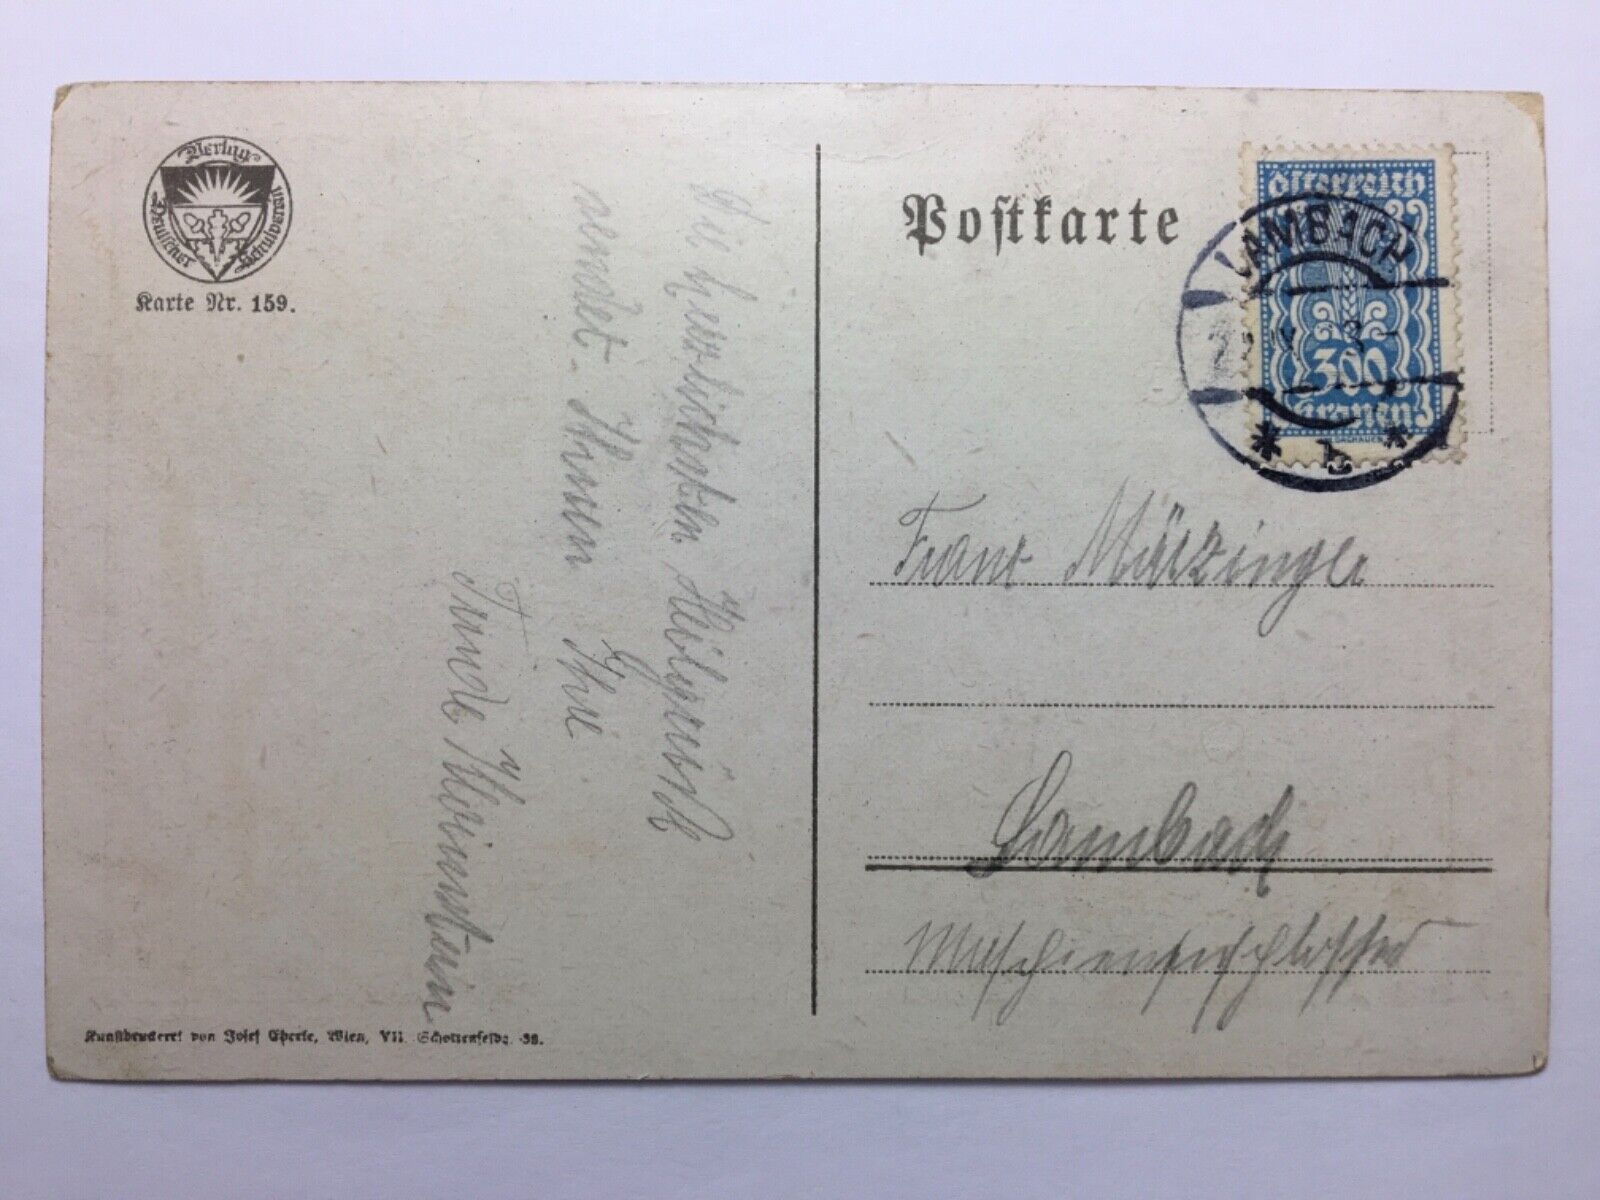 Verlag
Deutscher Schulverein
Karte Nr. 159.
Postkarte
Österreich
300
Kronen
LAMBACH
Die herzlichsten Heilgrüße
sendet Ihnen Ihre
Kunstdruckerei von Josef Eberle, Wien, VII. Schottenfeldg. 38.
Franz
Lambach
Maschienenschlosser